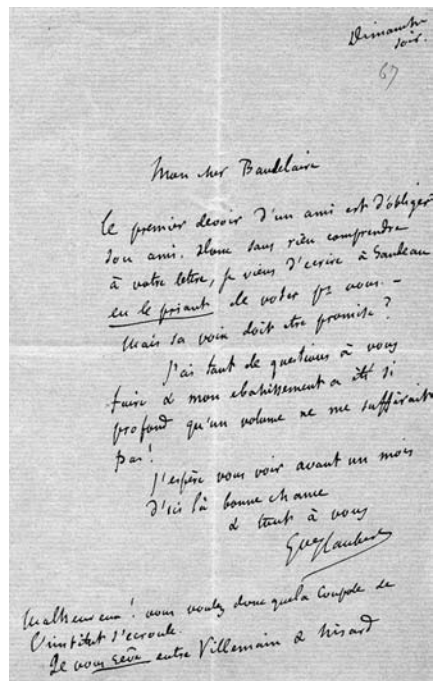 Dimanche
soir.
67
Mon cher Baudelaire
Le premier devoir d'un ami est d'obliger
son ami. Donc sans rien comprendre
à votre lettre, je viens d'écrire à Sandeau
en le priant de voter pr vous. –
Mais sa voix doit être promise ?
J'ai tant de questions à vous
faire & mon ébahissement a été si
profond qu'un volume ne me suffirait
pas !
J'espère vous voir avant un mois
d'ici là bonne chance
& tout à vous
Gve Flaubert
Malheureux ! vous voulez donc que la Coupole de
l'institut s'écroule.
Je vous rêve entre Villemain & Nisard